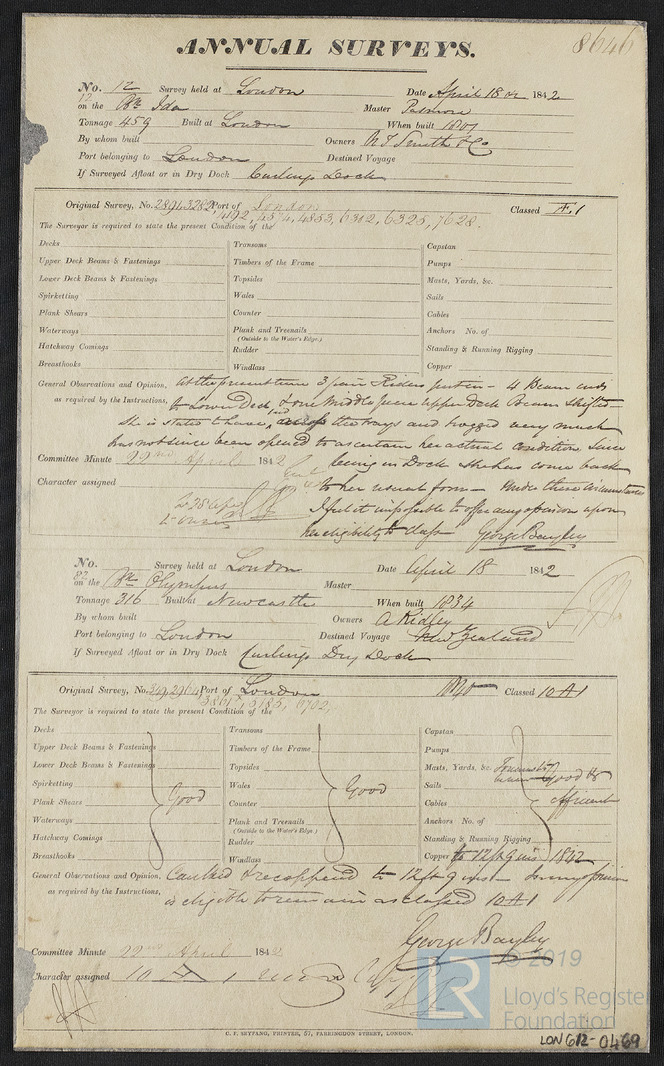 ANNUAL SURVEYS.
8646
No. 12 Survey held at London Date April 18 1842
on the Bk Ida Master
Tonnage 459 Built at London When built
By whom built Owners Smith & Co
Port belonging to London Destined Voyage
If Surveyed Afloat or in Dry Dock Curlings Dock
Original Survey, No. 2891, 3282 Port of London Classed Æ 1
4192, 4574, 4853, 6312, 6325, 7628.
The Surveyor is required to state the present Condition of the
Decks Transoms Capstan
Upper Deck Beams & Fastenings Timbers of the Frame Pumps
Lower Deck Beams & Fastenings Topsides Masts, Yards, &c.
Spirketting Wales Sails
Plank Shears Counter Cables
Waterways Plank and Treenails Anchors No. of
(Outside to the Water's Edge)
Hatchway Comings Rudder Standing & Running Rigging
Breasthooks Windlass Copper
General Observations and Opinion, At the present time 3 pair Riders put in - 4 Beam ends
as required by the Instructions, to Lower Deck & one Middle piece upper Deck Beam shifted -
She is stated to have the ways and hogged very much
has not since been opened to ascertain her actual condition Since
Committee Minute 22nd April 1842 being in Dock she has come back
Character assigned to her usual form - Under these circumstances
I feel it impossible to offer any opinion upon
her eligibility to class George Bayley
No. Survey held at London Date April 18 1842
87
on the Bk Olympus Master
Tonnage 316 Built at Newcastle When built 1834
By whom built Owners A Ridley
Port belonging to London Destined Voyage New Zealand
If Surveyed Afloat or in Dry Dock Curlings Dry Dock
Original Survey, No. 2964 Port of London Classed 10 A 1
5185, 6702.
The Surveyor is required to state the present Condition of the
Decks Transoms Capstan
Upper Deck Beams & Fastenings Timbers of the Frame Pumps
Lower Deck Beams & Fastenings Topsides Masts, Yards, &c. good &
Spirketting Good Wales Good Sails efficient
Plank Shears Counter Cables
Waterways Plank and Treenails Anchors No. of
(Outside to the Water's Edge)
Hatchway Comings Rudder Standing & Running Rigging
Breasthooks Windlass Copper to 12 ft 9 ins 1842
General Observations and Opinion, Caulked & recoppered to 12 ft 9 ins - In my opinion
as required by the Instructions, is eligible to remain as classed 10 A 1
George Bayley
Committee Minute 22nd April 1842
Character assigned 10 A 1
C. F. SEYFANG, PRINTER, 57, FARRINGDON STREET, LONDON.
© 2019
LR
Lloyd's Register
Foundation
LON 612-0469